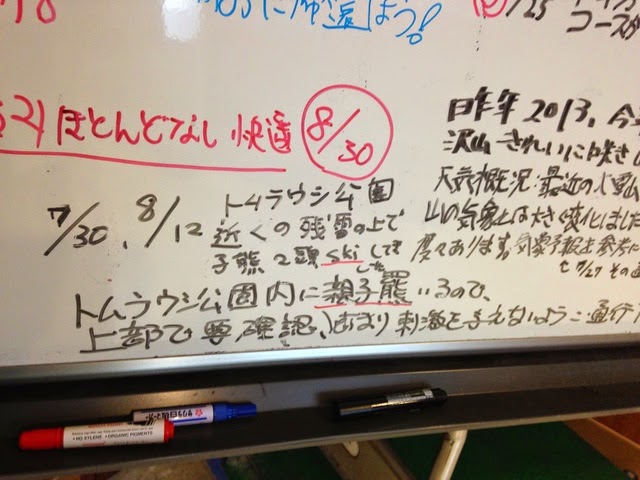 に帰還しよう!
/25
コース
ほとんどなし 快適 8/30
7/30、8/12 トムラウシ公園
近くの残雪の上で
子熊2頭 skiしてました
トムラウシ公園内に親子羆いるので、
上部で要確認、あまり刺激を与えないように通行
昨年2013、今
沢山きれいに咲き
天気概況・最近の
山の気象は大きく変化しました
度々あります。気象予報を参考に
7/27 その
• NO XYLENE • ORGANIC PIGMENTS